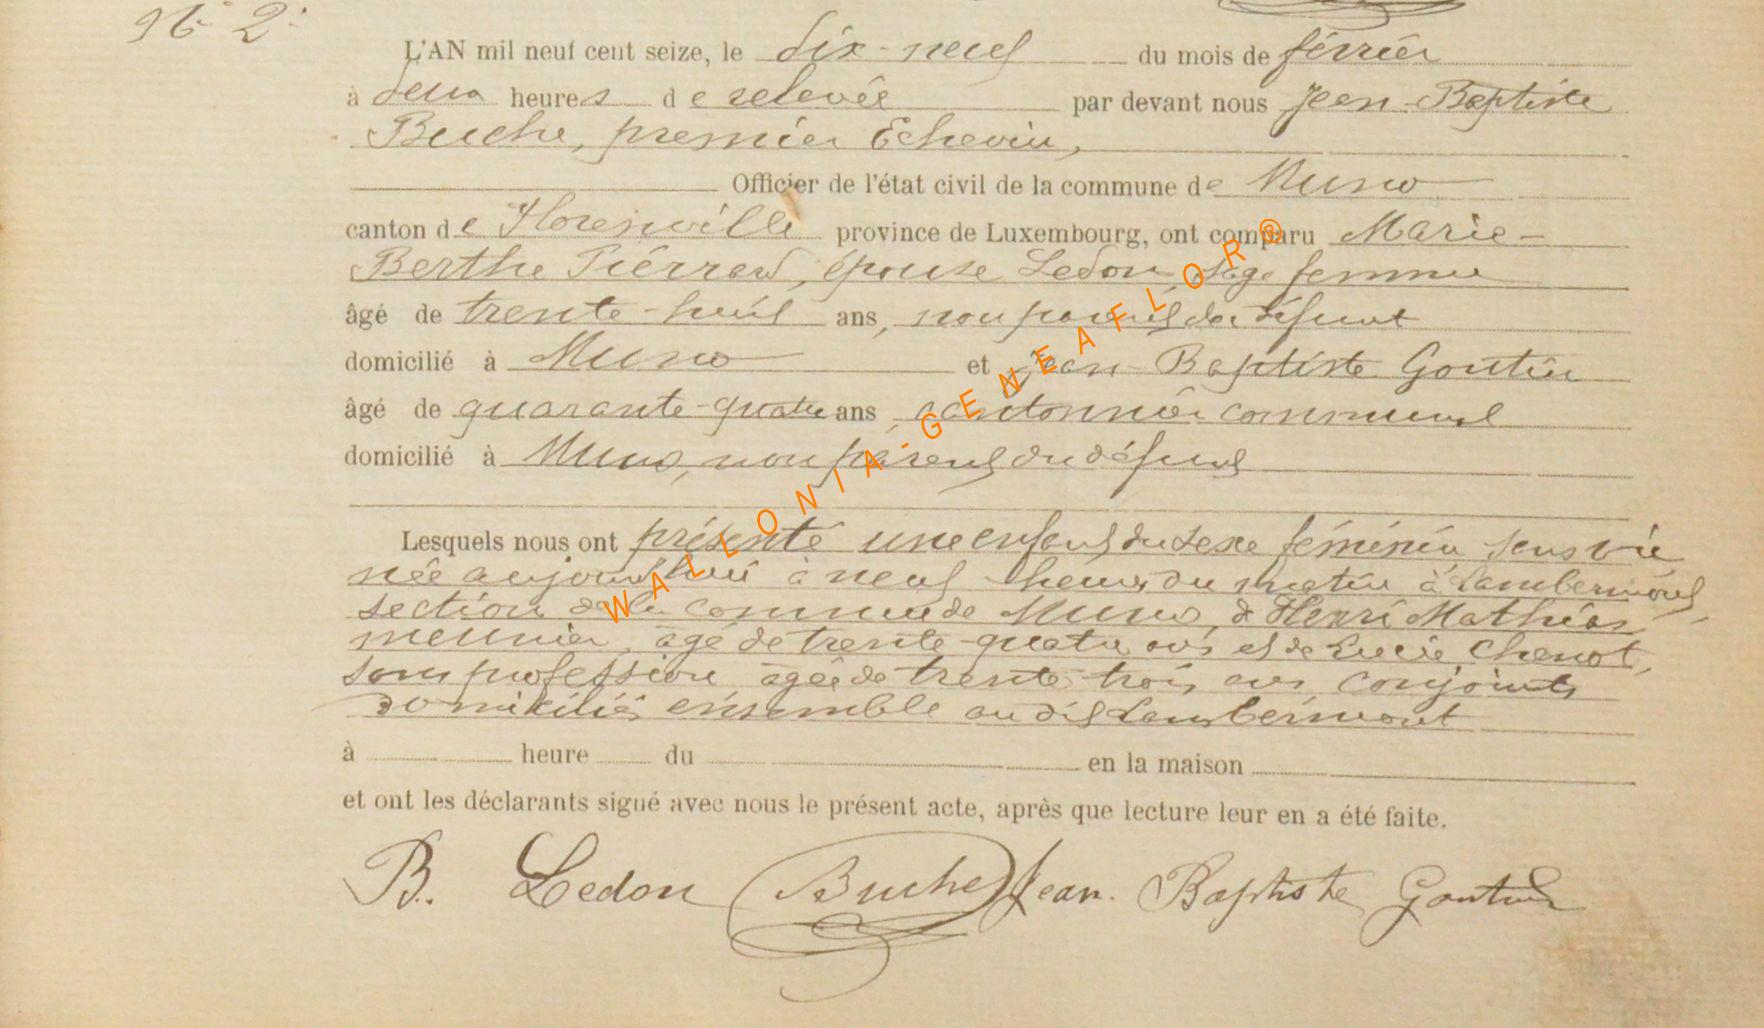 N° 2
L'AN mil neuf cent seize, le dix-neuf du mois de février
à deux heures de relevée par devant nous Jean-Baptiste
Buche, premier Echevin,
Officier de l'état civil de la commune de Muno
canton de Florenville province de Luxembourg, ont comparu Marie-
Berthe Piérrard, épouse Ledon, sage femme
âgé de trente-huit ans, non parent du défunt
domicilié à Muno et Jean-Baptiste Goutin
âgé de quarante-quatre ans, cantonnier communal
domicilié à Muno, non parent du défunt
Lesquels nous ont présenté une enfant du sexe féminin sans vie
née aujourd'hui à neuf heures du matin à Lambermont
section de la commune de Muno, d Henri Mathias
meunier, âgé de trente-quatre ans et de Lucie Chenot,
sans profession âgée de trente-trois ans, conjoints
domiciliés ensemble au dit Lambermont
à heure du en la maison
et ont les déclarants signé avec nous le présent acte, après que lecture leur en a été faite.
B. Ledon Buche Jean Baptiste Goutin
WALLONIA-GENEAFLOR®